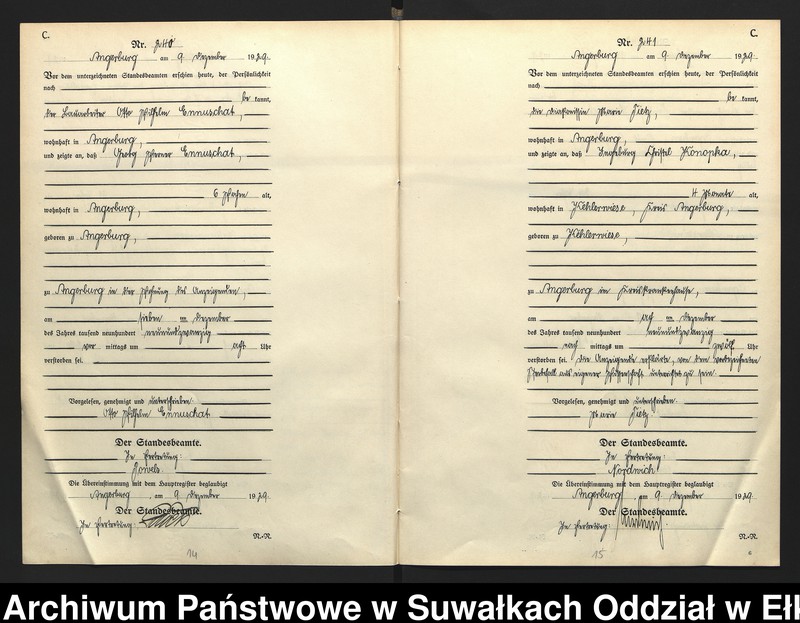 C.
Nr. 240
Angerburg am 9 Dezember 1929.
Vor dem unterzeichneten Standesbeamten erschien heute, der Persönlichkeit
nach
be kannt,
der Bauarbeiter Otto Wilhelm Ennuschat,
wohnhaft in Angerburg,
und zeigte an, daß Georg Werner Ennuschat,
6 Wochen alt,
wohnhaft in Angerburg,
geboren zu Angerburg,
zu Angerburg in der Wohnung des Anzeigenden,
am sieben ten Dezember
des Jahres tausend neunhundert neunundzwanzig
vor mittags um acht Uhr
verstorben sei.
Vorgelesen, genehmigt und unterschrieben.
Otto Wilhelm Ennuschat
Der Standesbeamte.
In Vertretung:
Die Übereinstimmung mit dem Hauptregister beglaubigt
Angerburg, am 9 Dezember 1929.
Der Standesbeamte.
In Vertretung:
N.-N.
14
C.
Nr. 241
Angerburg am 9 Dezember 1929.
Vor dem unterzeichneten Standesbeamten erschien heute, der Persönlichkeit
nach
be kannt,
die Diakonissin Marie Tietz,
wohnhaft in Angerburg,
und zeigte an, daß Ingeburg Christel Konopka,
4 Monate alt,
wohnhaft in Kehlerwiese, Kreis Angerburg,
geboren zu Kehlerwiese,
zu Angerburg im Kreiskrankenhause,
am ach ten Dezember
des Jahres tausend neunhundert neunundzwanzig
nach mittags um zwölf Uhr
verstorben sei. Die Anzeigende erklärte, von dem vorbezeichneten
Sterbefall aus eigener Wissenschaft unterrichtet zu sein.
Vorgelesen, genehmigt und unterschrieben.
Marie Tietz.
Der Standesbeamte.
In Vertretung:
Nordwich
Die Übereinstimmung mit dem Hauptregister beglaubigt
Angerburg, am 9 Dezember 1929.
Der Standesbeamte.
In Vertretung:
N.-N.
15
Archiwum Państwowe w Suwałkach Oddział w Ełk